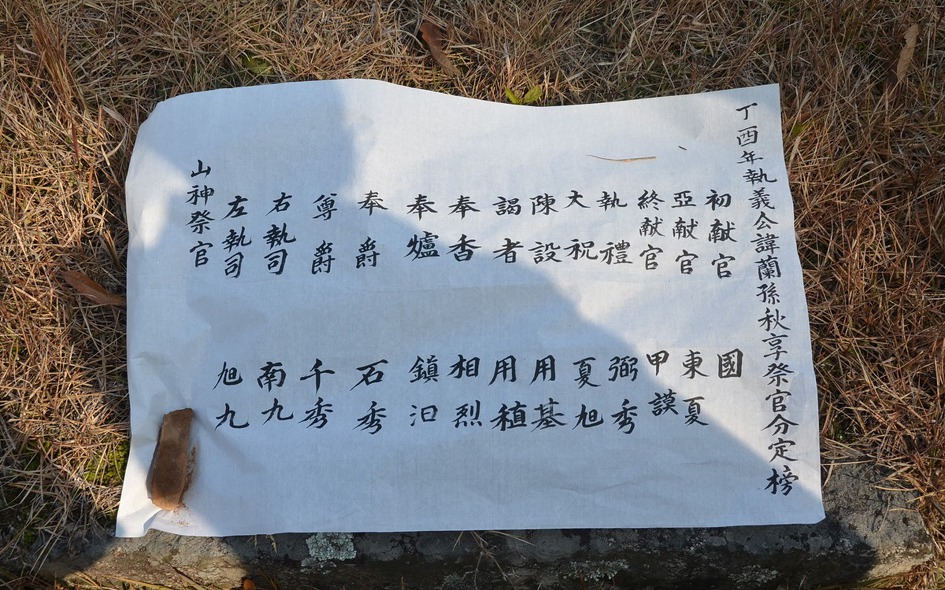 丁酉年執義公諱蘭孫秋享祭官分定榜
初献官 國
亞献官 東夏
終献官 甲謨
執禮 弼秀
大祝 夏旭
陳設 用基
謁者 用稙
奉香 相烈
奉爐 鎭汩
奉爵 石秀
尊爵 千秀
右執司 南九
左執司 旭九
山神祭官